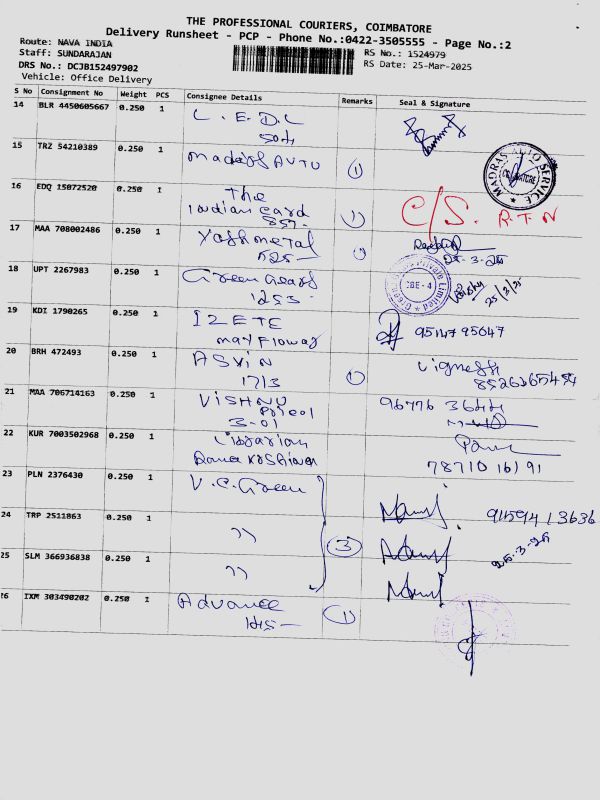 THE PROFESSIONAL COURIERS, COIMBATORE
Delivery Runsheet - PCP - Phone No.:0422-3505555 - Page No.:2
Route: NAVA INDIA
Staff: SUNDARAJAN
RS No.: 1524979
DRS No.: DCJB152497902
RS Date: 25-Mar-2025
Vehicle: Office Delivery
S No Consignment No Weight PCS Consignee Details Remarks Seal & Signature
14 BLR 4450605667 0.250 1 L.E.D.L
15 TRZ 54210389 0.250 1 AUTO 1
MADRAS AUTO SERVICE
COIMBATORE
16 EDQ 15072520 0.250 1 The
Indian Card 1 C/S. R.T.N
857-
17 MAA 708002486 0.250 1 Yashmetal
525- 25-3-25
18 UPT 2267983 0.250 1 Green Gears
1253- 25/3/25
Private Limited
CBE - 4
19 KDI 1790265 0.250 1 IZETE
mayflower 95147 95647
20 BRH 472493 0.250 1 ASVIN Vignesh
1713 1
21 MAA 706714163 0.250 1 VISHNU 96776 3644
3-01
22 KUR 7003502968 0.250 1 Librarian
78710 16191
23 PLN 2376430 0.250 1 V.C.Green
24 TRP 2511863 0.250 1 ,, 3 25-3-25
25 SLM 366936838 0.250 1 ,,
26 IXM 303490202 0.250 1 Advance 1
145-